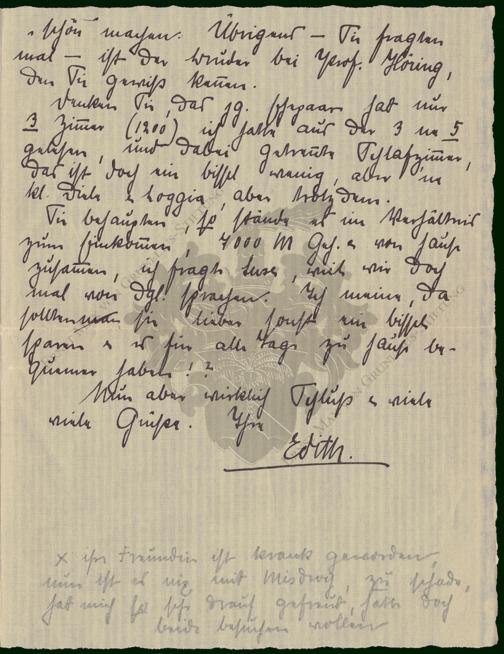 "schön machen. Übrigens – Sie fragten
mal – ist der Bruder bei Prof. Höring,
den Sie gewiß kennen.
Denken Sie, das jg. Ehepaar hat nur
3 Zimmer (1200) ich hatte aus der 3 ne 5
gelesen, und dabei getrennte Schlafzimmer,
das ist doch ein bissel wenig, aber 'ne
kl. Diele & Loggia, aber trotzdem.
Sie behaupten, so stände es im Verhältnis
zum Einkommen, 7000 M Geh. & von Hause
zusammen, ich fragte, weil wir doch
mal von dgl. sprachen. Ich meine, da
sollten sie lieber sonst ein bissel
sparen & es für alle Tage zu Hause be-
quemer haben!?
Nun aber wirklich Schluß & viele
viele Grüße. Ihre
Edith.
x ihre Freundin ist krank geworden,
nun ist es nix mit Misdroy, zu schade,
hat mich so sehr drauf gefreut, hätte doch
beide besuchen wollen